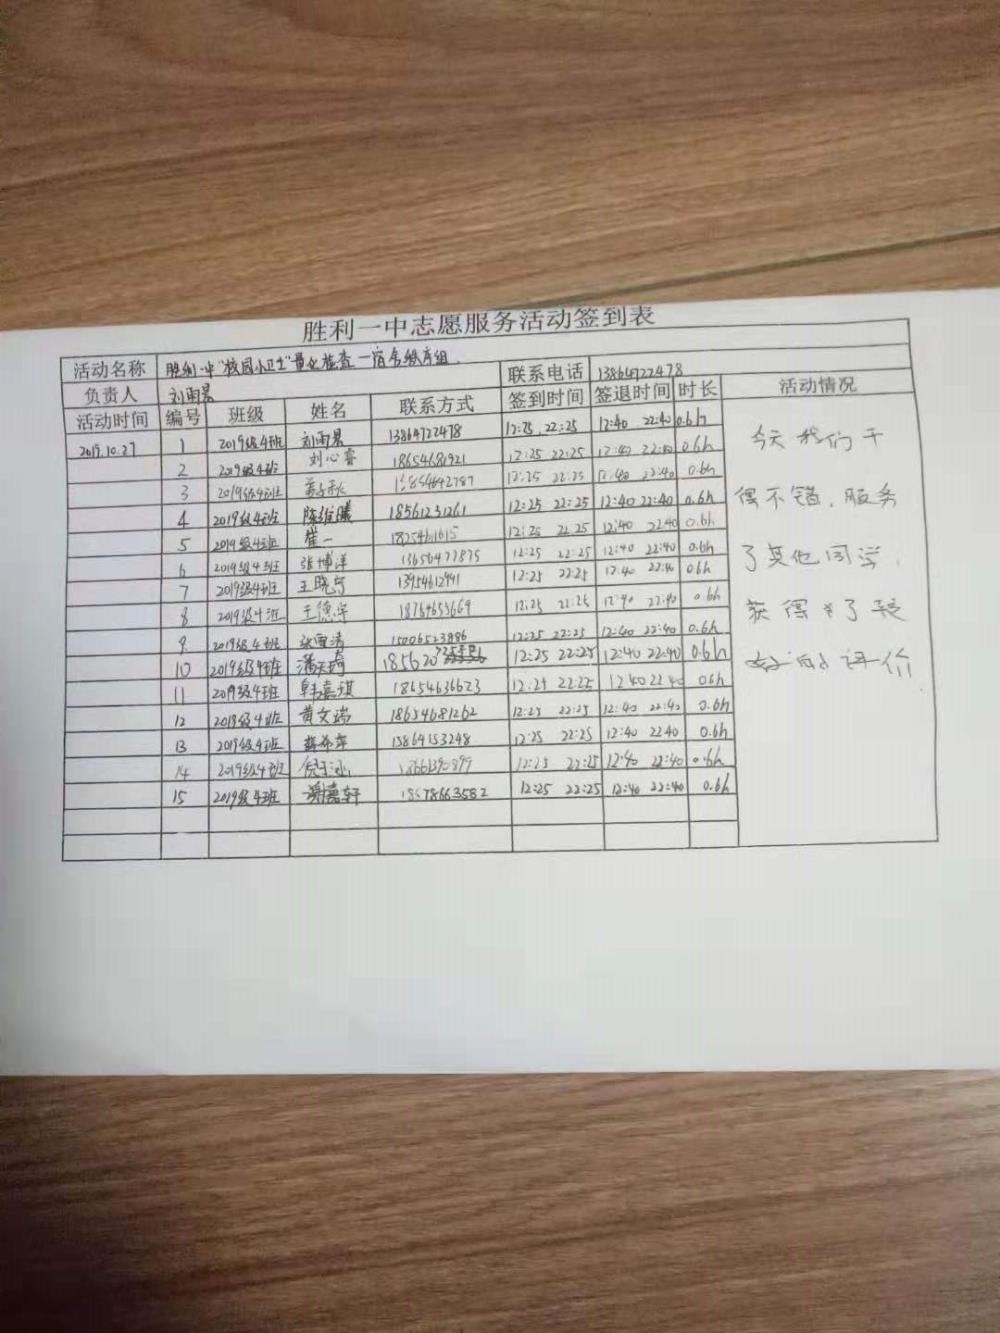 胜利一中志愿服务活动签到表
活动名称 胜利一中"校园小卫士"量化检查—宿舍秩序组 联系电话 13864722478
负责人 刘雨晨 签到时间 签退时间 时长 活动情况
活动时间 编号 班级 姓名 联系方式
2019.10.27 1 2019级4班 刘雨晨 13864722478 12:25 22:25 12:40 22:40 0.6h
2 2019级4班 刘心睿 18654681921 12:25 22:25 12:40 22:40 0.6h
3 2019级4班 12:25 22:25 12:40 22:40 0.6h
4 2019级4班 18561231261 12:25 22:25 12:40 22:40 0.6h
5 2019级4班 崔一 18254611615 12:25 22:25 12:40 22:40 0.6h
6 2019级4班 张博洋 13656477875 12:25 22:25 12:40 22:40 0.6h
7 2019级4班 王晓宁 12:25 22:25 12:40 22:40 0.6h
8 2019级4班 王德宇 18764653669 12:25 22:25 12:40 22:40 0.6h
9 2019级4班 张雪清 15006523886 12:25 22:25 12:40 22:40 0.6h
10 2019级4班 12:25 22:25 12:40 22:40 0.6h
11 2019级4班 韩嘉琪 18654636623 12:25 22:25 12:40 22:40 0.6h
12 2019级4班 黄文瑞 18654681262 12:25 22:25 12:40 22:40 0.6h
13 2019级4班 15864153248 12:25 22:25 12:40 22:40 0.6h
14 2019级4班 12:25 22:25 12:40 22:40 0.6h
15 2019级4班 谢嘉轩 18678663582 12:25 22:25 12:40 22:40 0.6h
今天我们干
得不错,服务
了其他同学,
获得了较
好的评价